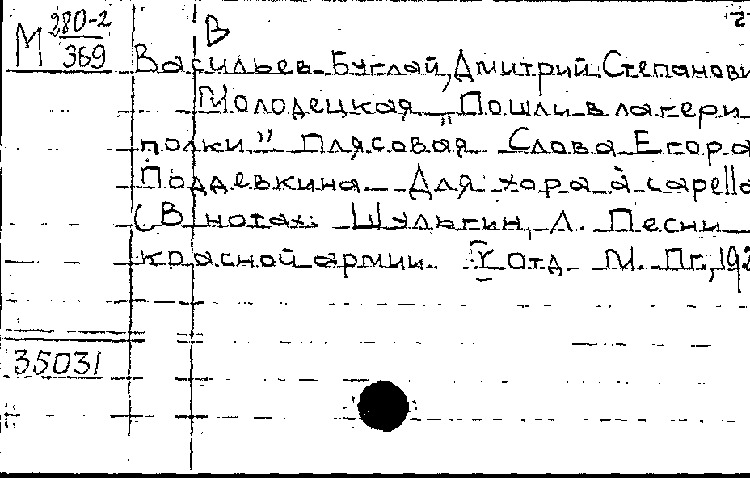 М 280-2
369
В
2
Васильев-Буглай, Дмитрий Степанови
Молодецкая „Пошли в лагери
полки" Плясовая Слова Егора
Поддевкина Для хора à capella
(В нотах: Шульгин, Л. Песни
красной армии. V отд М. Пг., 192
35031